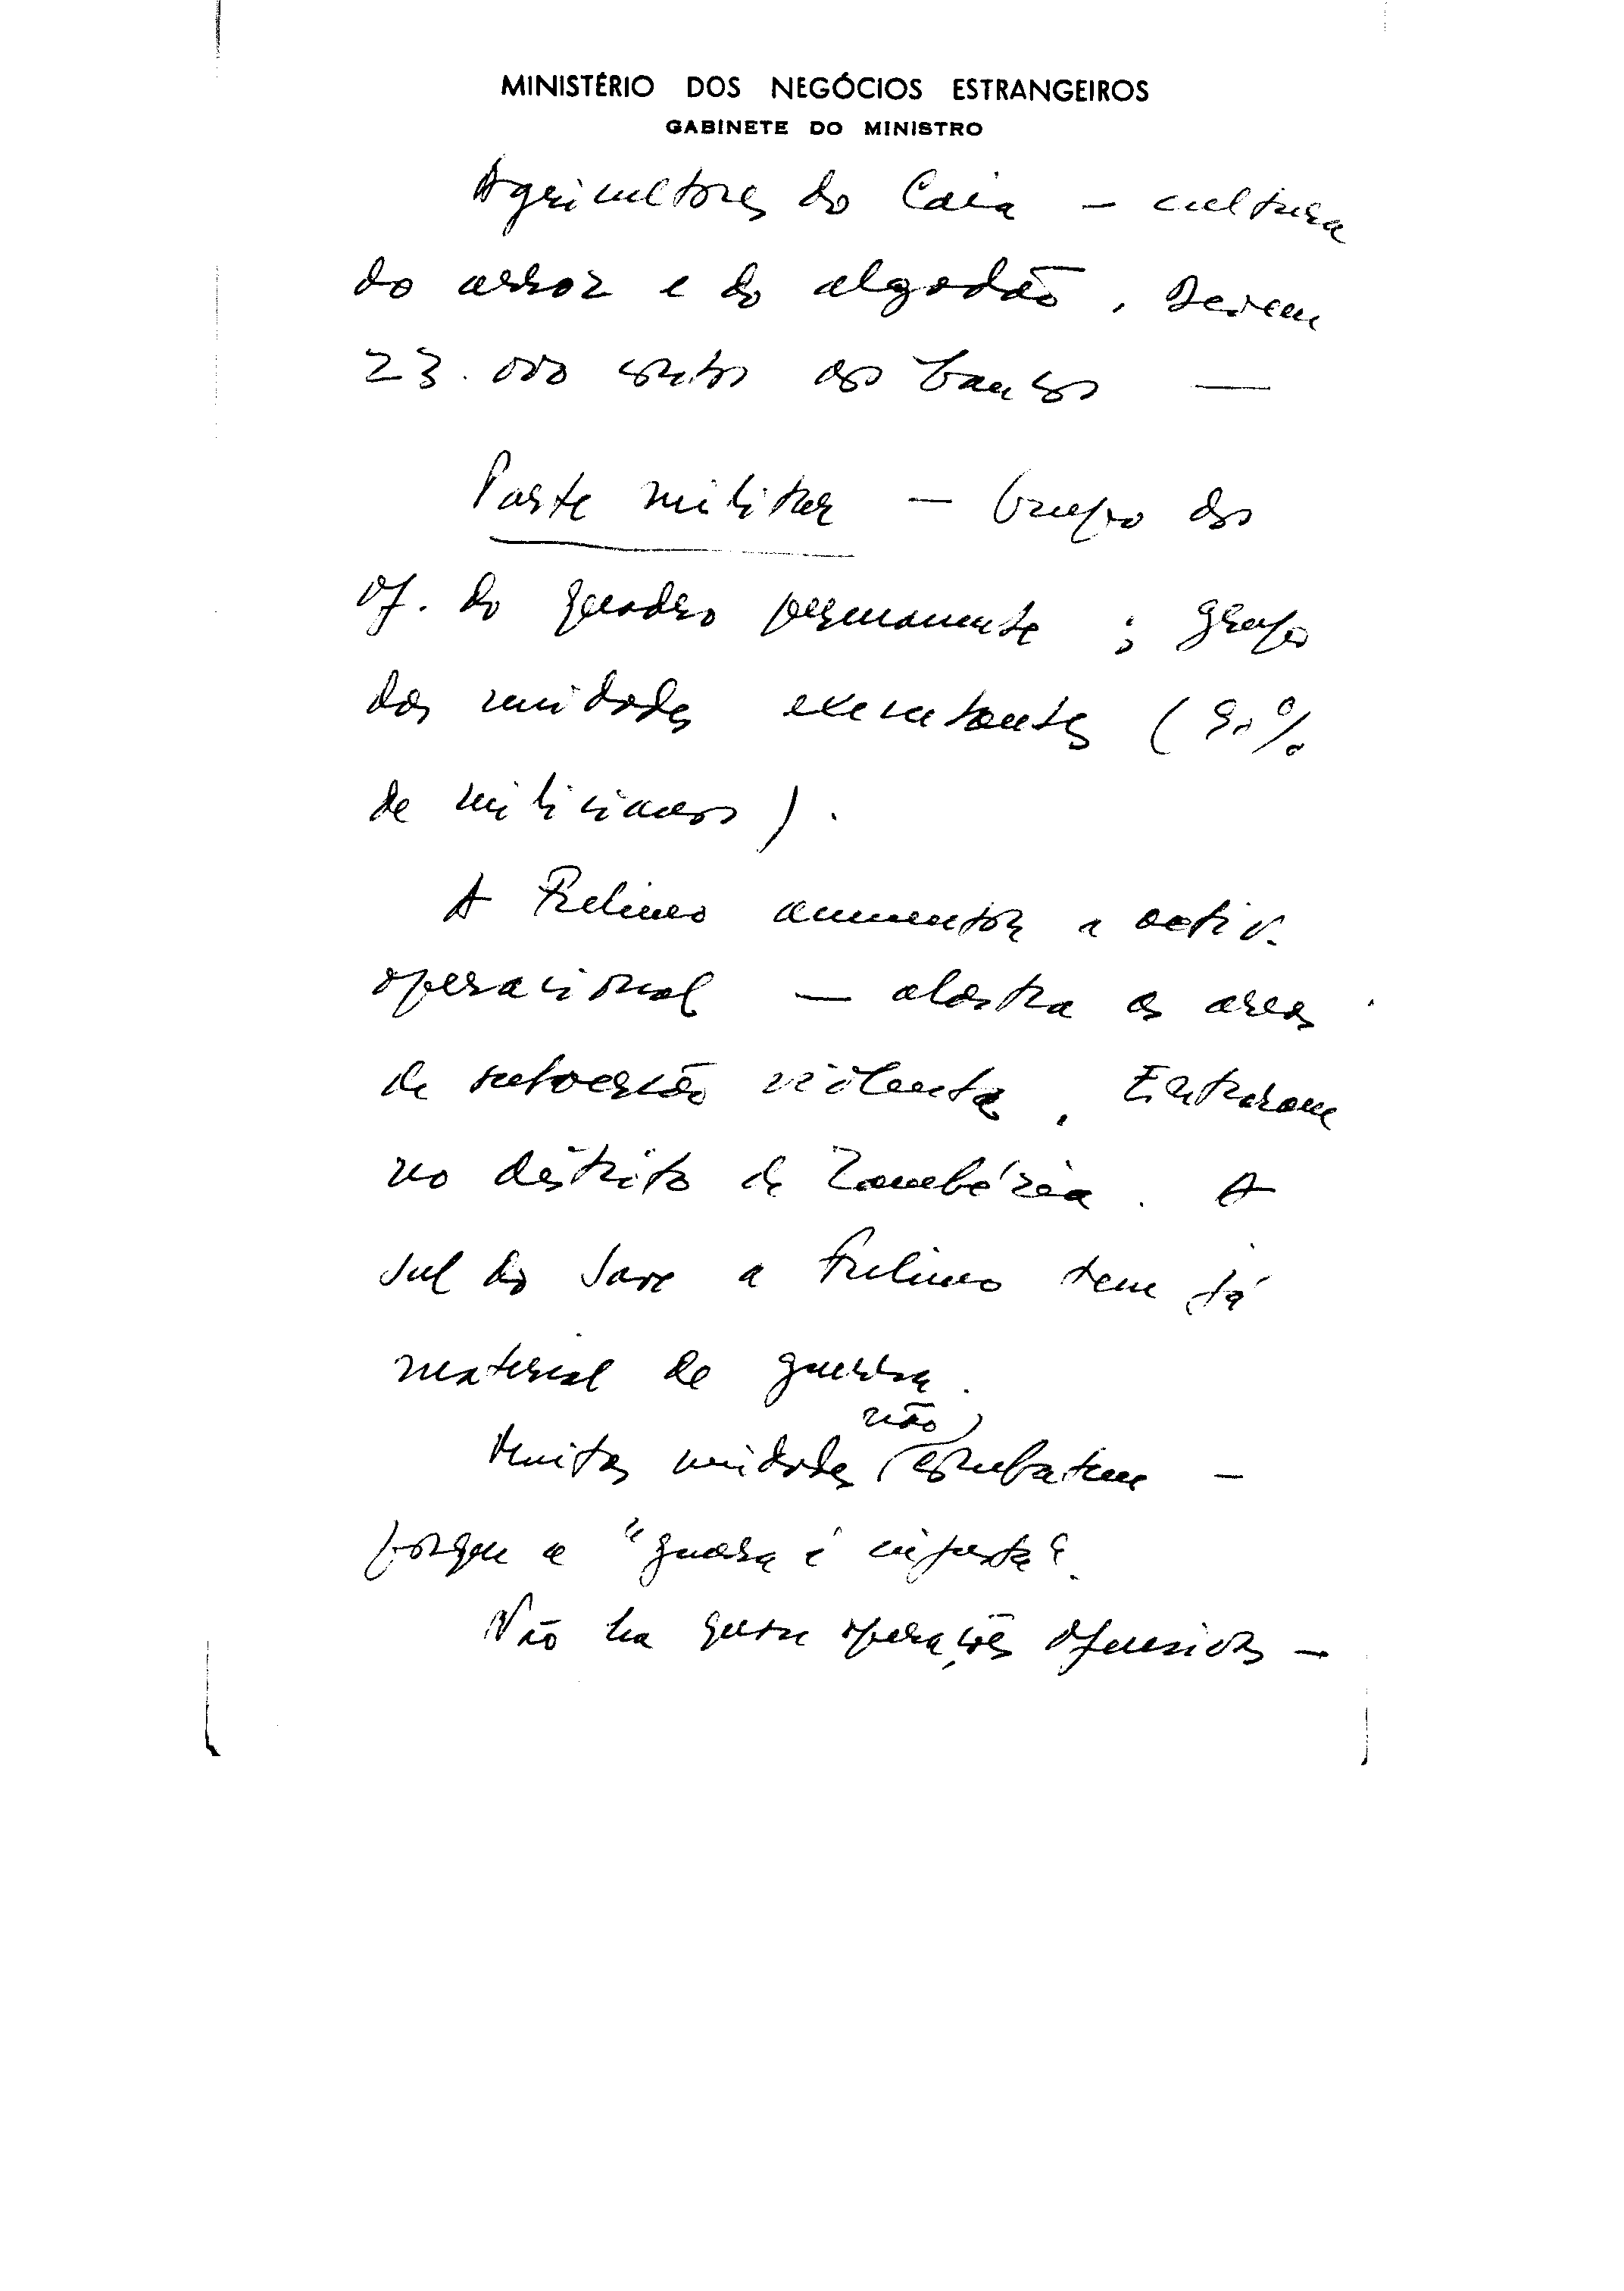 MINISTÉRIO DOS NEGÓCIOS ESTRANGEIROS
GABINETE DO MINISTRO
Agricultores do Caia – cultura
do arroz e do algodão. Devem
23.000 contos aos bancos —
Parte militar — Grupo dos
of. do quadro permanente; grupo
das unidades executantes (90%
de milicianos).
A Frelimo aumentou a activ.
operacional — alastra as areas
de subversão violenta. Entraram
no distrito da Zambézia. A
sul do Save a Frelimo tem já
material de guerra.
não
Muitas unidades combatem –
porque a "guerra é injusta".
Não ha quase operações ofensivas –